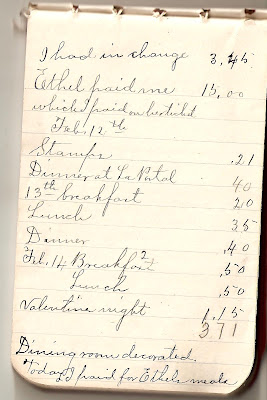 I had in change 3.45
Ethel paid me 15.00
which I paid on her ticket
Feb, 12th
Stamps .21
Dinner at La Portal 40
13th breakfast 20
Lunch 35
Dinner .40
Feb, 14 Breakfast 2 .50
Lunch .50
Valentine night 1.15
371
Dining room decorated.
Today I paid for Ethels meals